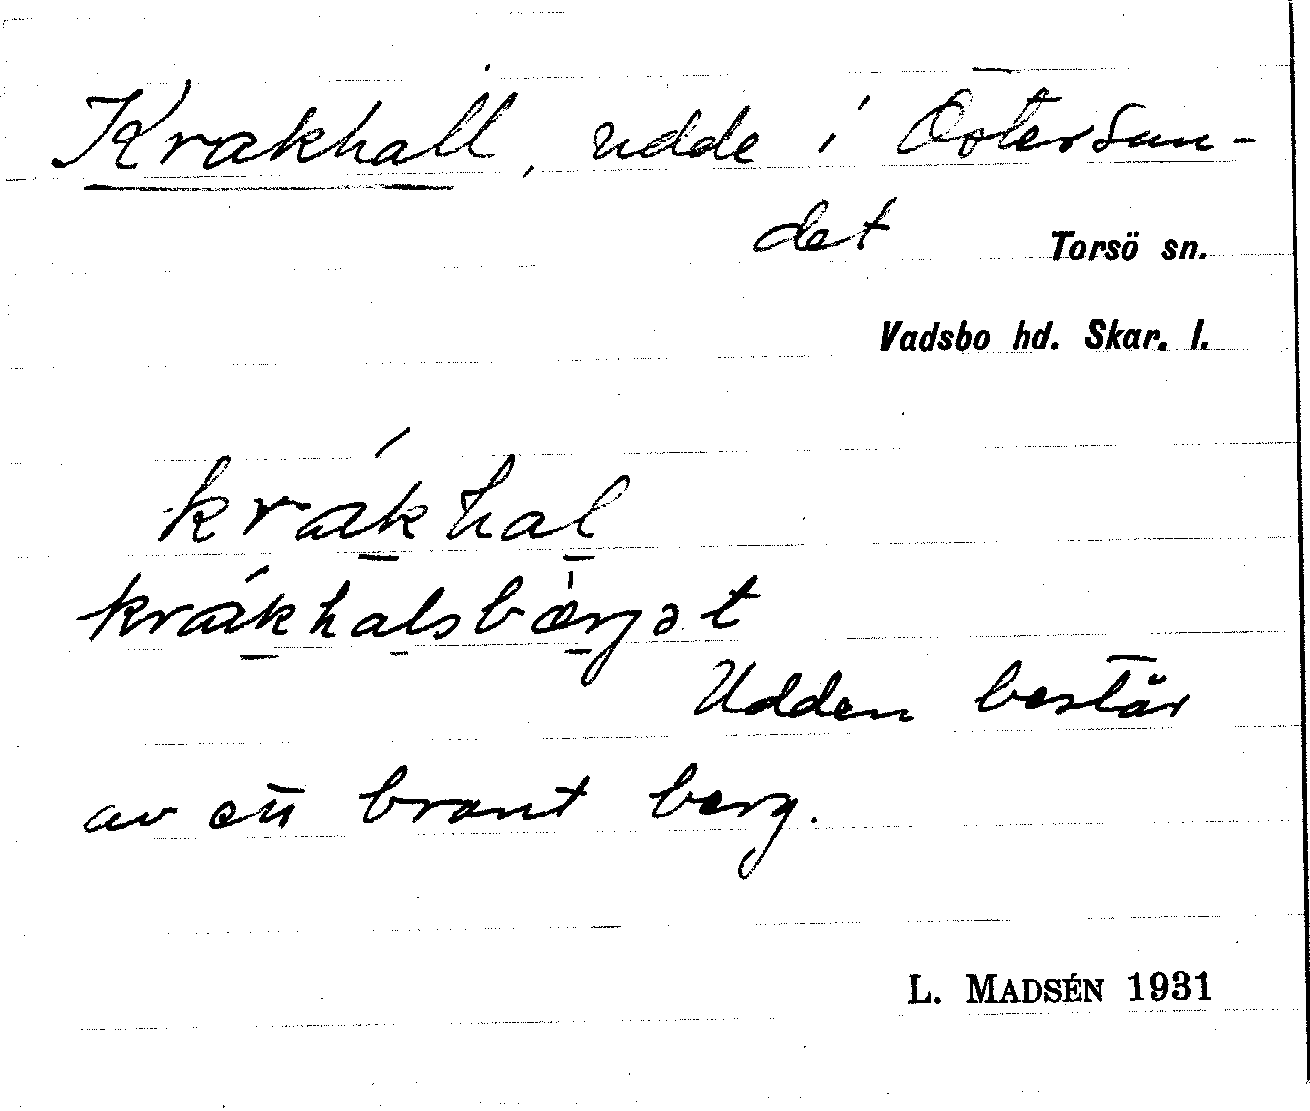 Krakhall, udde i Östersun-
det
Torsö sn.
Vadsbo hd. Skar. l.
krák̲hal̲
krák̲hal̲sbær̲jət
Udden består
av ett brant berg.
L. MADSÉN 1931